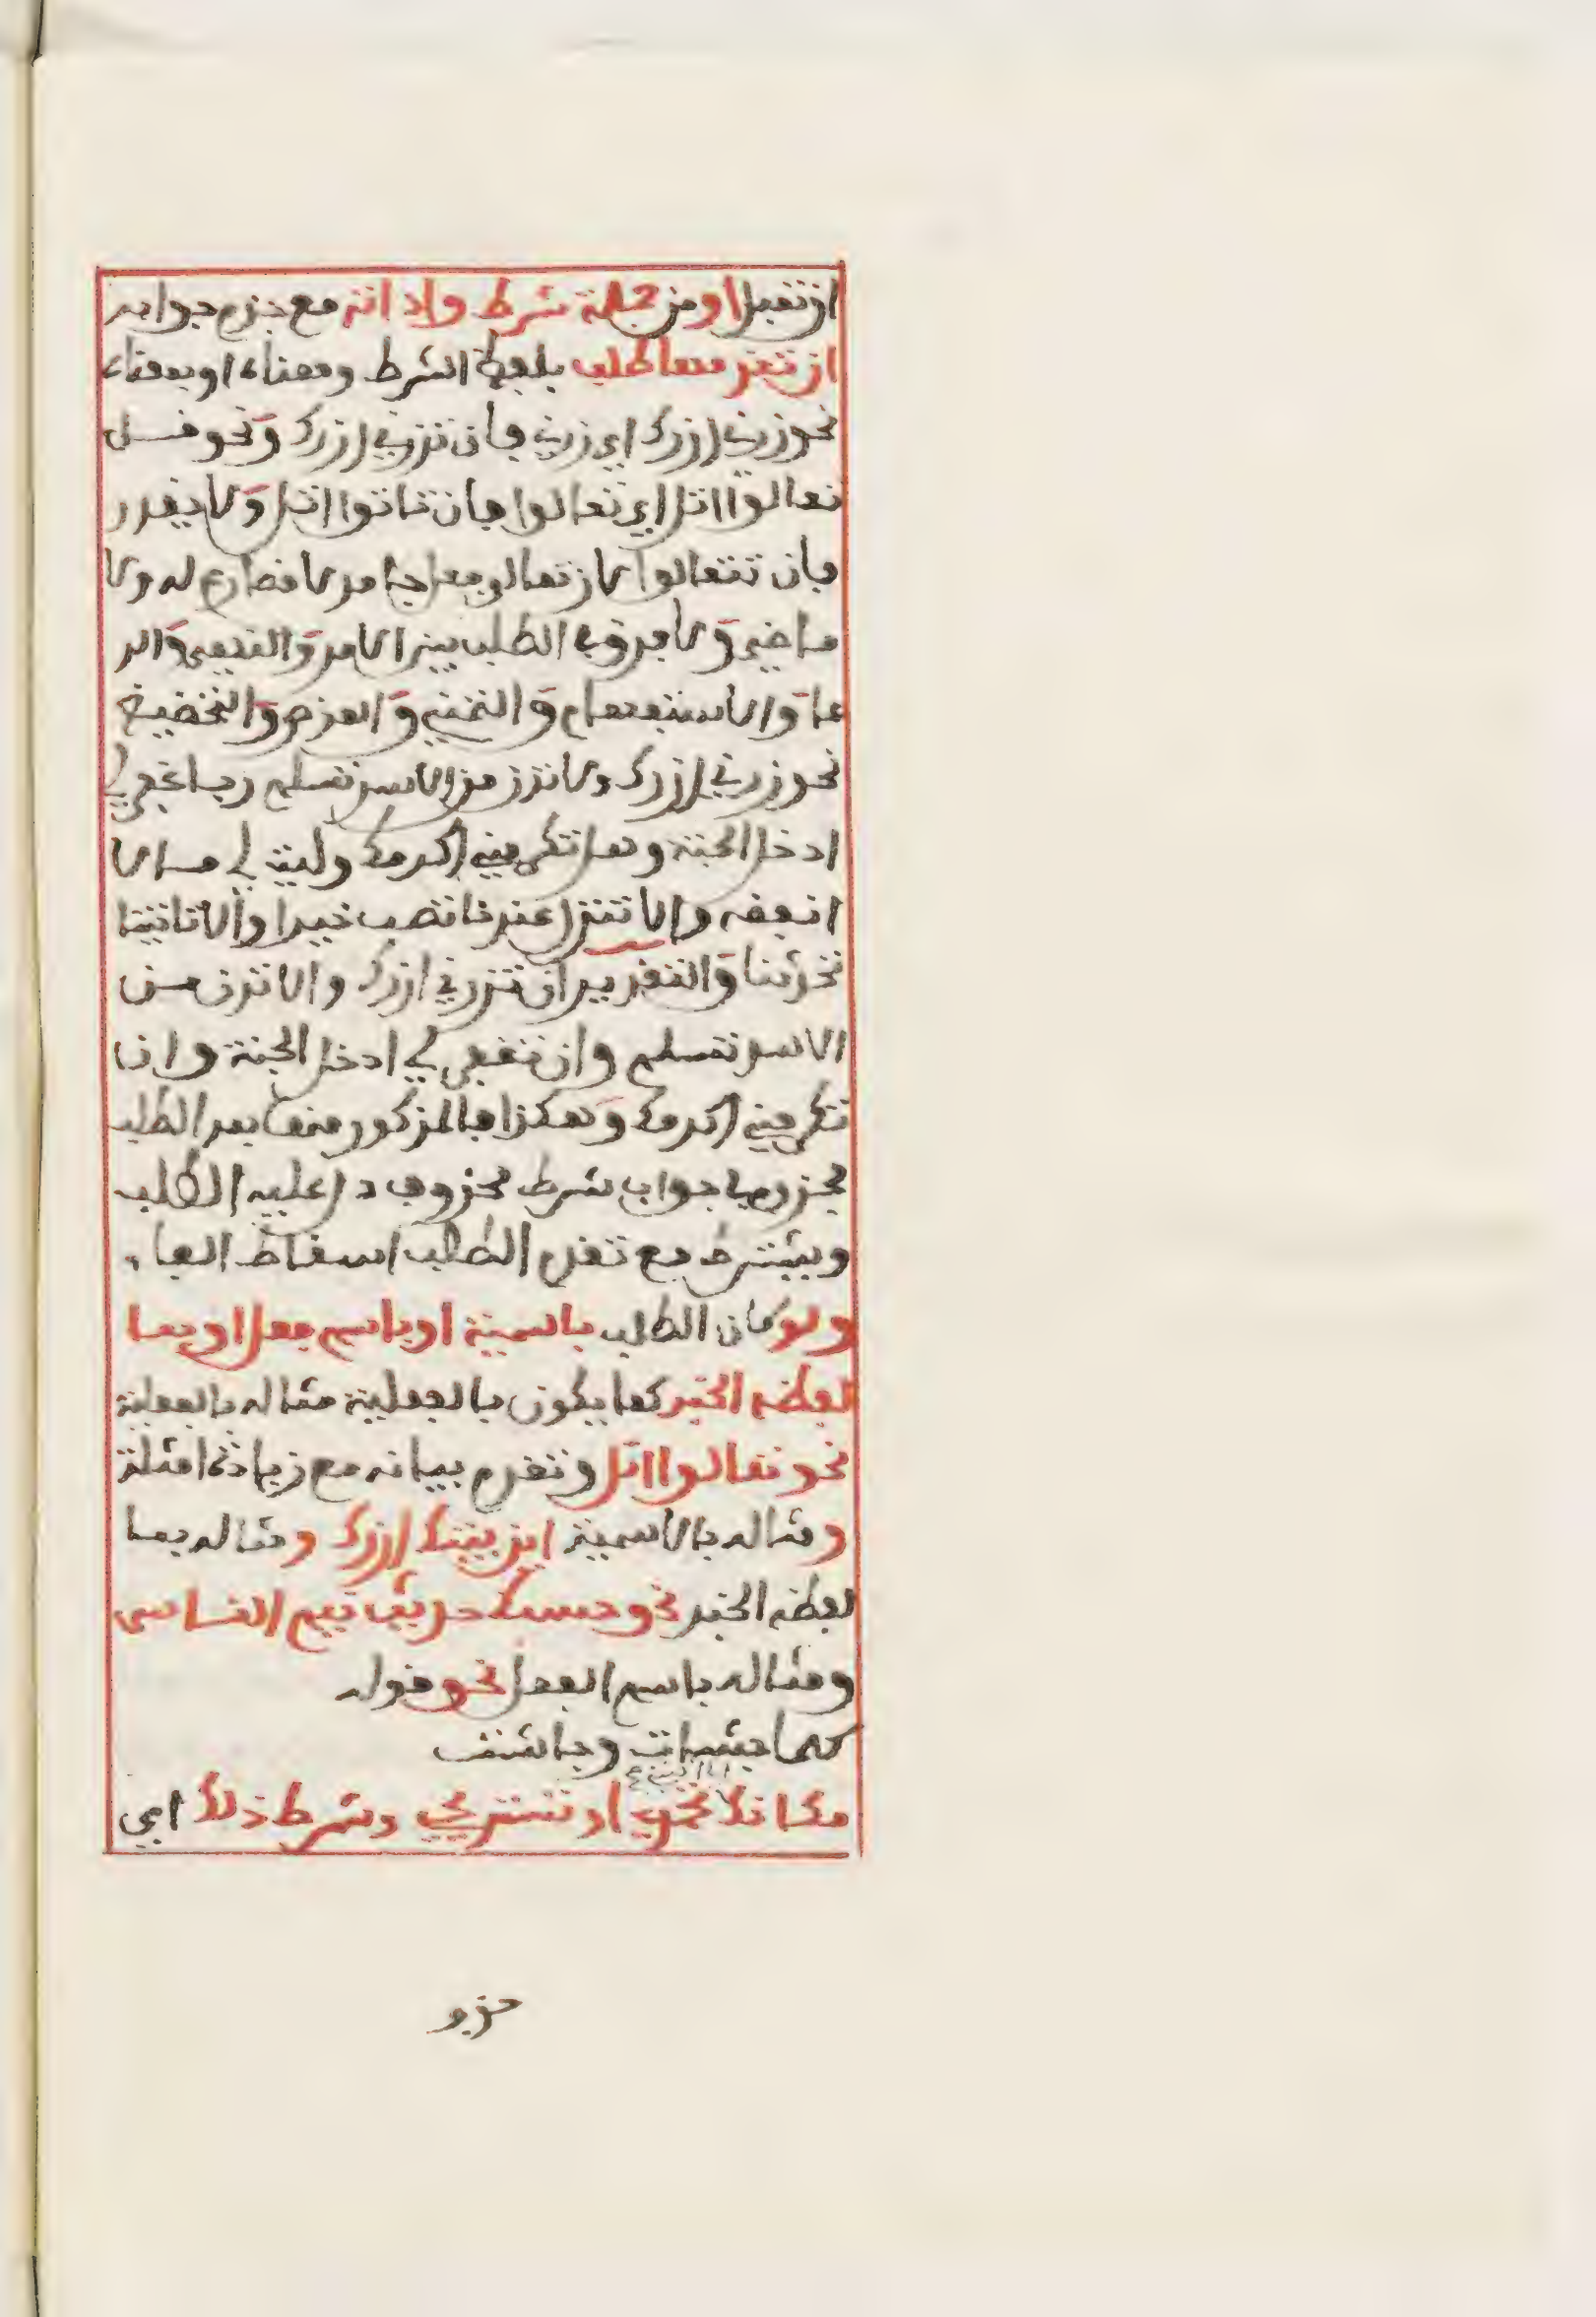 ان تفعل او من جملة شرط واداته مع جزم جوابه
ان تقدمها طلب بلفظ الشرط ومعناه او بمعناه
نحو زرني ازرك اي زرني فان تزرني ازرك ونحو قل
تعالوا اتل اي تعالوا فان تاتوا اتل ولا يقدر
فان تتعالوا لان تعال فعل جامد لا مضارع له ولا
ماضي ولا فرق في الطلب بين الامر والنهي والد
عا والاستفهام والتمني والعرض والتحضيض
نحو زرني ازرك ولا تدن من الاسد تسلم رب اغفر لي
ادخل الجنة وهل تكرمني اكرمك وليت لي مالا
انفقه والا تنزل عندنا تصب خيرا والا تاتينا
تحدثنا والتقدير ان تزرني ازرك والا تدن من
الاسد تسلم وان تغفر لي ادخل الجنة وان
تكرمني اكرمك وهكذا فالمذكور منها بعد الطلب
مجزوم في جواب شرط محذوف دل عليه الطلب
ويشترط مع تقدم الطلب اسقاط الفاء
ولو كان الطلب باسمية او باسم فعل او بما
لفظه الخبر كما يكون بالفعلية مثاله بالفعلية
نحو تعالوا اتل وتقدم بيانه مع زيادة امثلة
ومثاله بالاسمية اين بيتك ازرك ومثاله بما
لفظه الخبر نحو حسبك حديث ينم الناس
ومثاله باسم الفعل نحو قوله
كلما جشات وجاشت
مكانك تحمدي او تستريحي وشرط ذلك اي